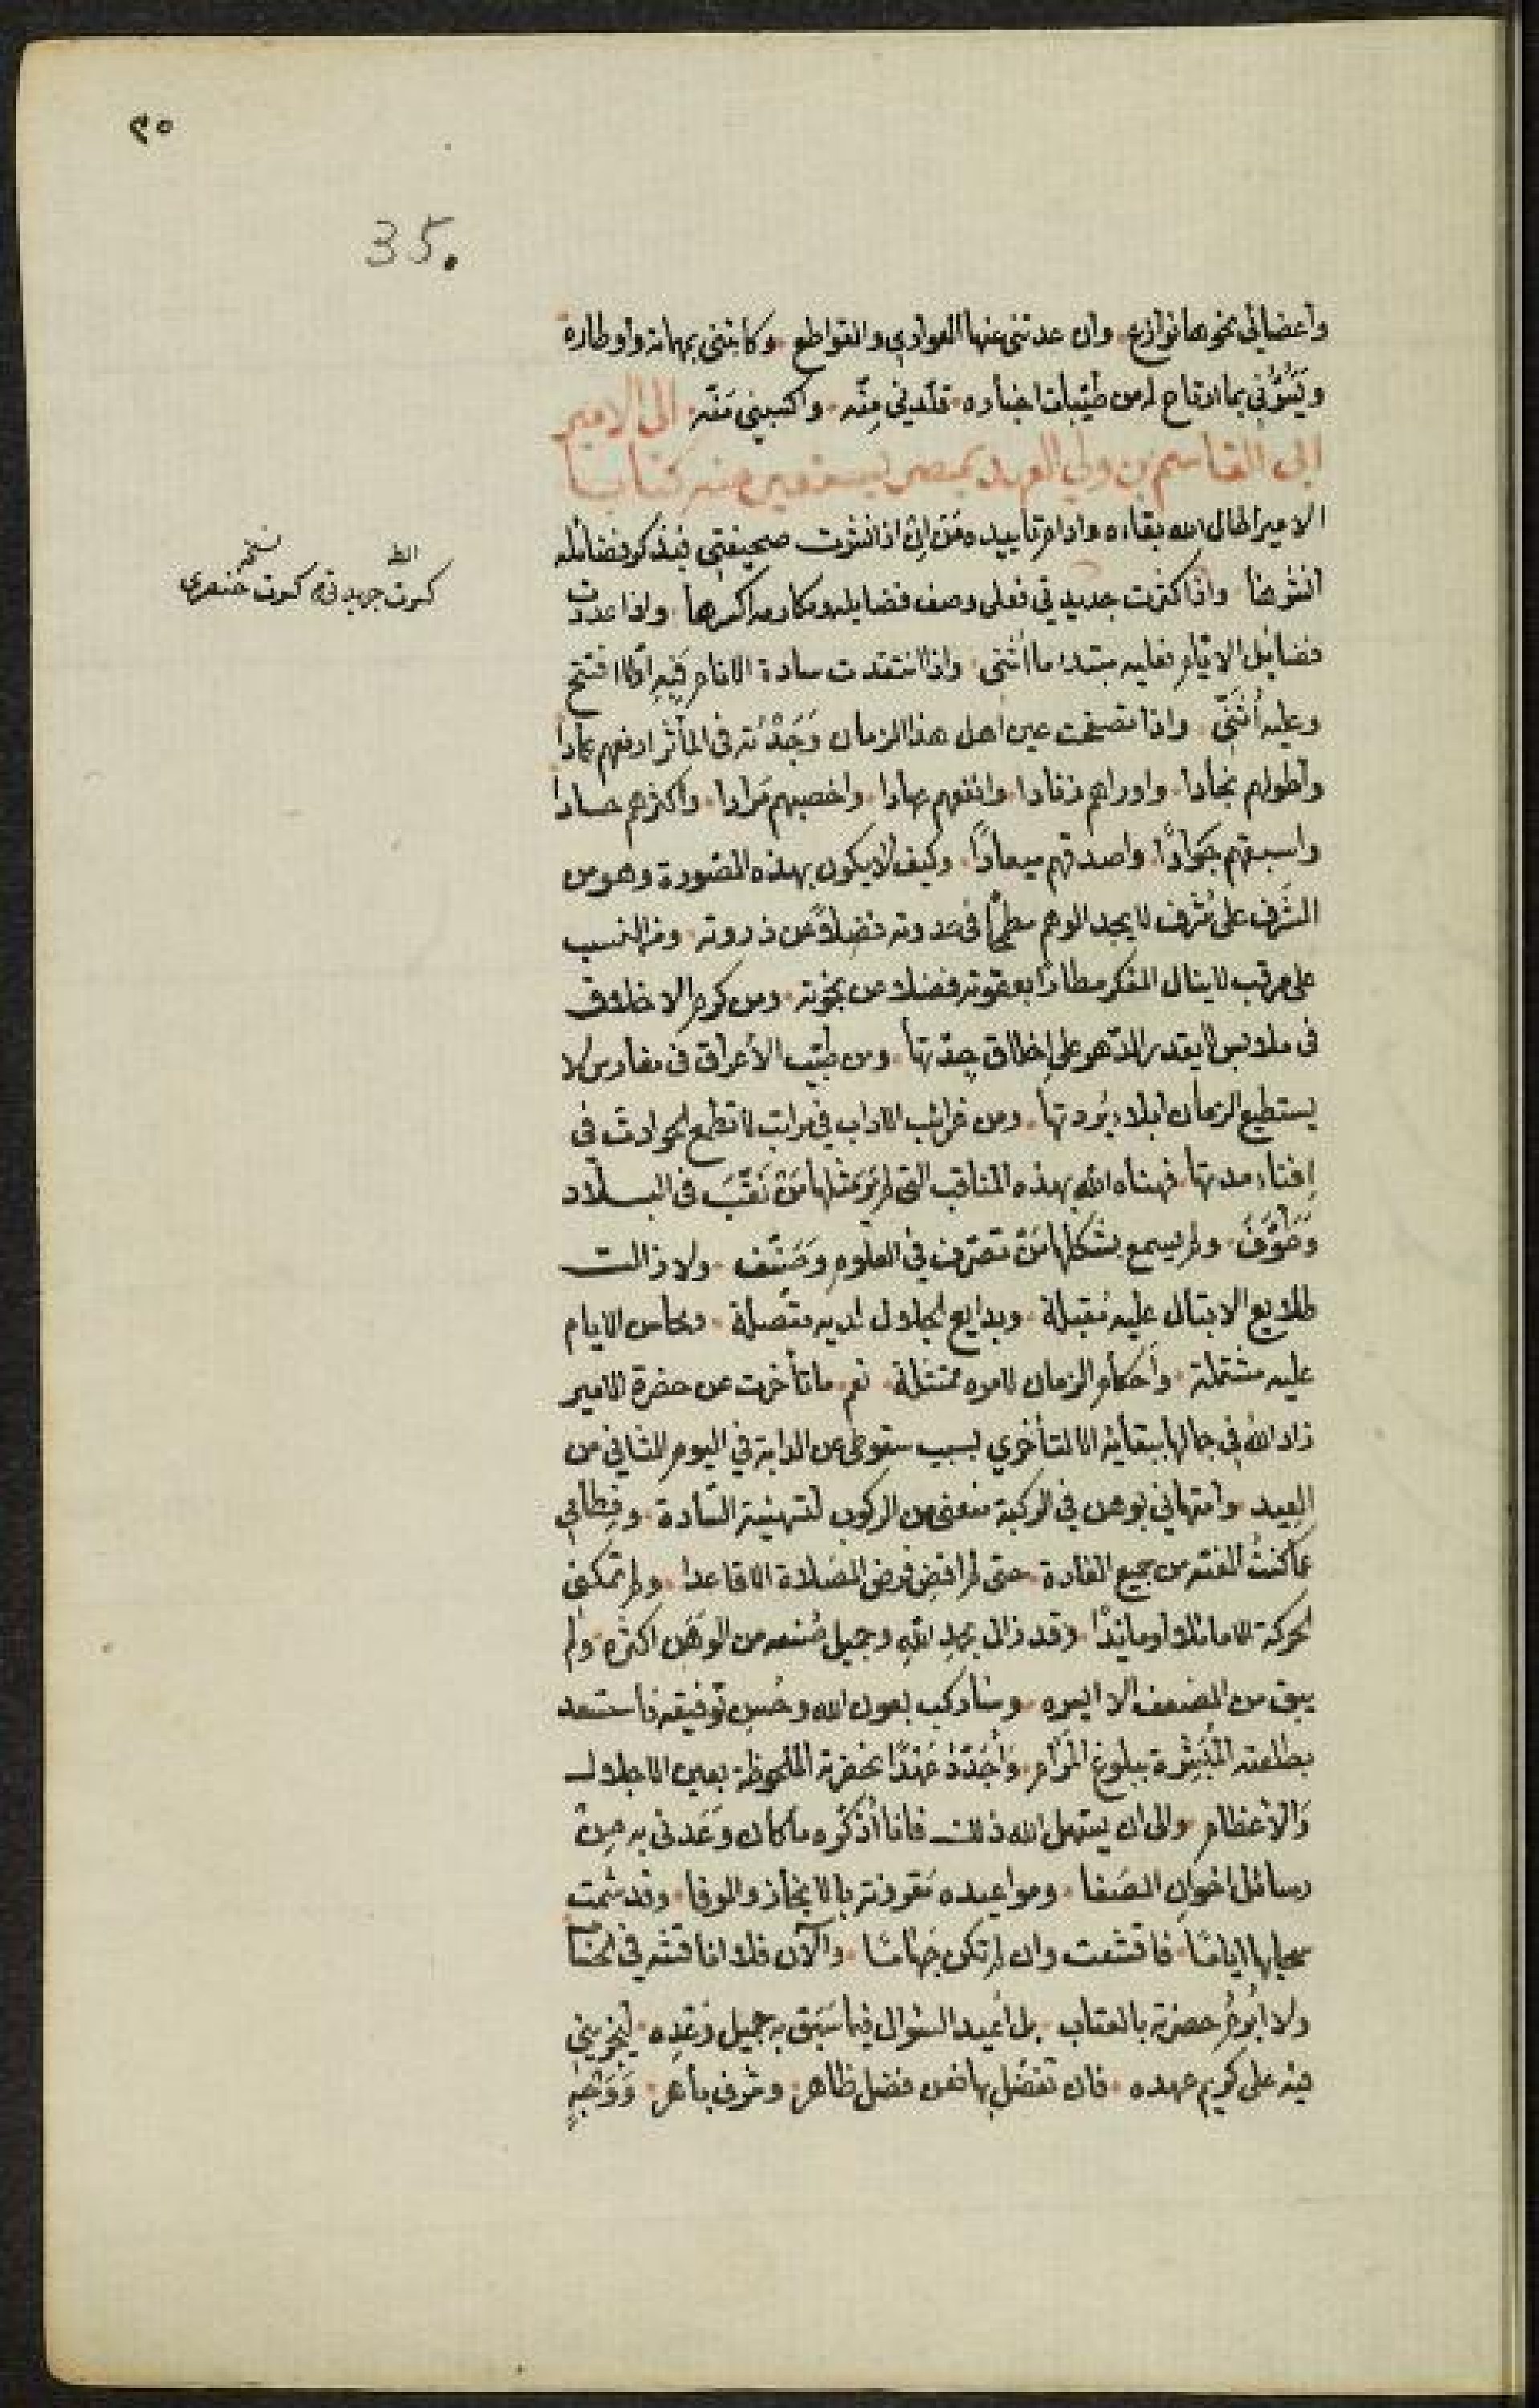 ٩٠
35.
واعضائي نحوها نوازع وان عدتني عنها العوادي والقواطع وكاتبني بمهماته واوطاره
ويَسُرُّني بما ارتاح له من طيّبات اخباره قلدني مِنّه واكسبني مَنّه الى الامير
ابى القاسم بن ولي العهد بمصر يستعير منه كتابا
الامير اطال الله بقاءه وادام تاييده مَن اِن اذا نشرت صحيفتي فبذكر فضائله
انشرها واذا كثرت جديدتي فعلى وصف فضايله ومكارمه اكسرها واذا عددت
فضايل الايام فعليه مبتدا ما أُثنى واذا انتقدت سادة الانام فَبِه اوّلا افتتح
وعليه أُثَنّي واذا تصفحت عين اهل هذا الزمان وَجَدْته في المأثر ارفعهم عمادا
واطولهم نجادا واوراهم زنادا وانقعهم عهادا واخصبهم مَرادا واكثرهم حسادا
واسبقهم جَوادًا واصدقهم ميعادًا وكيف لا يكون بهذه الصورة وهو من
الشَرف على شُرف لا يجد الوهم مطمحًا في عدوته فضلاً عن ذروته ومن النسب
على مرقب لا ينال الفكر مطارًا بعقوته فضلا عن نجوته ومن كرم الاخلاق
في ملابس لا يقدر الدّهر على اِخلاق جِدّتها ومن طيّب الأعراق في مغارس لا
يستطيع الزمان ابلاء بُردتها ومن غرائب الاداب في مراتب لا تطمع الحوادث في
اِفناء مدتها فهناه الله بهذه المناقب التي لم يَرَ مثلها مَن نَقّبَ في البلاد
وَطَوَّفَ ولم يسمع بشكلها مَن تصرف في العلوم وَصَنّف ولا زالت
طلايع الاقبال عليه مُقبلة وبدايع الجلال لديه متّصلة ومحاسن الايام
عليه مشتملة وأحكام الزمان لامره ممتثلة نعم ما تأخرت عن حضرة الامير
زاد الله في جمالها ببقائه الا لتأخري بسبب سقوطي عن الدابة في اليوم الثاني من
العيد وامتهاني بوهن في الركبة منعني من الركوب لتهنية السّادة وفِطامي
عمّا كنتُ الفته من جميع العادة حتى لم اقضِ فرض الصَلاة الا قاعدا ولم تمكنى
الحركة الا ماثلا او مايدًا وقد زال بحمد اللهِ وجميل صُنعه من الوَهَن اكثره ولم
يبق من الضعف الا ايسره وساركب بعون الله وحُسن توفيقه فاستسعد
بطلعته المُبَشِّرة ببلوغ المَرَام وَأُجَدّدُ عَهْدًا بحضرته الملحوظة بعين الاجلال
وَالأعظام والى ان يسهل الله ذلك فانا اُذَكّره ما كان وَعَدني به مِن
رسائل اخوان الصَفا ومواعيده مَقرونة بالانجاز والوفا وقد شمت
سحابها اياما فاقشعت وان لم تكن جَهامًا والآن فلا اناقشه في الحسَاب
ولا ابُرِمُ حضرته بالعتاب بل اُعيد السّؤال فيما سَبَق به جميل وَعْدِه ليُجريني
فيه على كريم عهده فان تفضل بها فعن فضل ظاهر وشرف بأهر وَوَجْهٍ
الط
كسرت جريدتي كسرت خنصري
نسخه